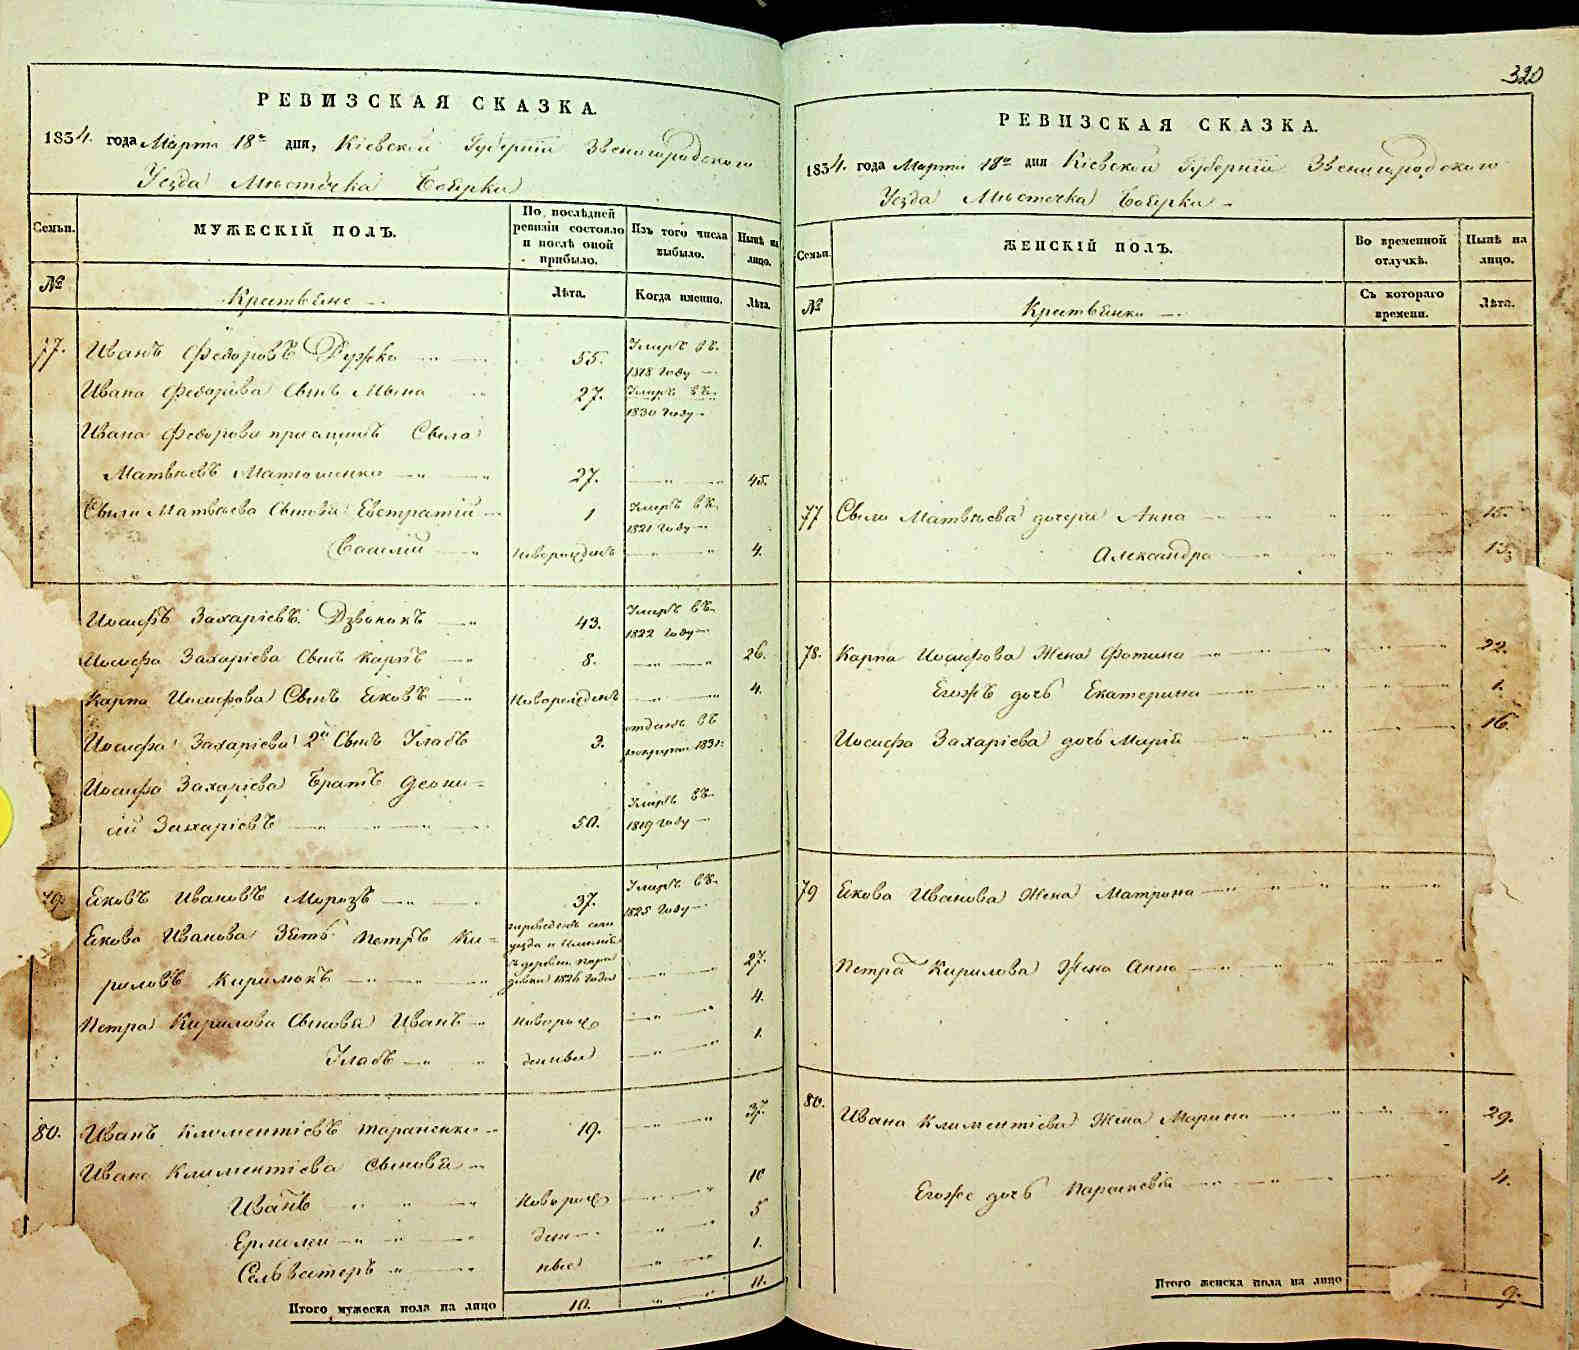 320
РЕВИЗСКАЯ СКАЗКА.
1834. года Марта 18го дня, Кіевской Губерніи Звенигородского
Уезда Мѣстечка Боярки
Семьи.
МУЖЕСКІЙ ПОЛЪ.
По послѣдней ревизіи состояло и послѣ оной прибыло.
Изъ того числа выбыло.
Нынѣ на лицо.
№
Крестьяне
Лѣта.
Когда именно.
Лѣта.
77. Иванъ Федоровъ Дужка 55. Умеръ въ 1818 году
Ивана Федорова Сынъ 27. Умеръ въ 1830 году
Ивана Федорова
Матвѣевъ Матюшенко 27. 45.
Матвѣева Сыновья Евстратій 1 Умеръ въ 1821 году
Василій новорожденъ 4.
Иосифъ Захаріевъ Дзвонокъ 43. Умеръ въ 1822 году
Иосифа Захаріева Сынъ Карпъ 8. 26.
Карпа Иосифова Сынъ Яковъ Новорожденъ 4.
Иосифа Захаріева 2й Сынъ Уласъ 3. отданъ въ рекруты 1831.
Иосифа Захаріева братъ Деони=
сій Захаріевъ 50. Умеръ въ 1819 году
79. Яковъ Ивановъ Морозъ 37. Умеръ въ 1825 году
Якова Иванова Зять Петръ Ки=
риловъ 1826 года 27.
Петра Кирилова Сыновья Иванъ новорож 4.
Уласъ денные 1.
80. Иванъ Климентіевъ Тараненко 19. 37.
Ивана Климентіева Сыновья
Иванъ Новорож 10
Ермилей ден 5
Сельвестеръ ные 1.
Итого мужеска пола на лицо 10. 11.
РЕВИЗСКАЯ СКАЗКА.
1834. года Марта 18го дня Кіевской Губерніи Звенигородского
Уезда Мѣстечка Боярки
Семьи.
ЖЕНСКІЙ ПОЛЪ.
Во временной отлучкѣ.
Нынѣ на лицо.
№
Крестьянки
Съ котораго времени.
Лѣта.
77 Матвѣева дочери Анна 15.
Александра 13
78. Карпа Иосифова Жена Фотина 22.
Егожъ дочь Екатерина 1.
Иосифа Захаріева дочь Марія 16.
79 Якова Иванова Жена Матрона
Петра Кирилова Жена Анна
80. Ивана Климентіева Жена Марина 29.
Егоже дочь Параскевія 4.
Итого женска пола на лицо 9.